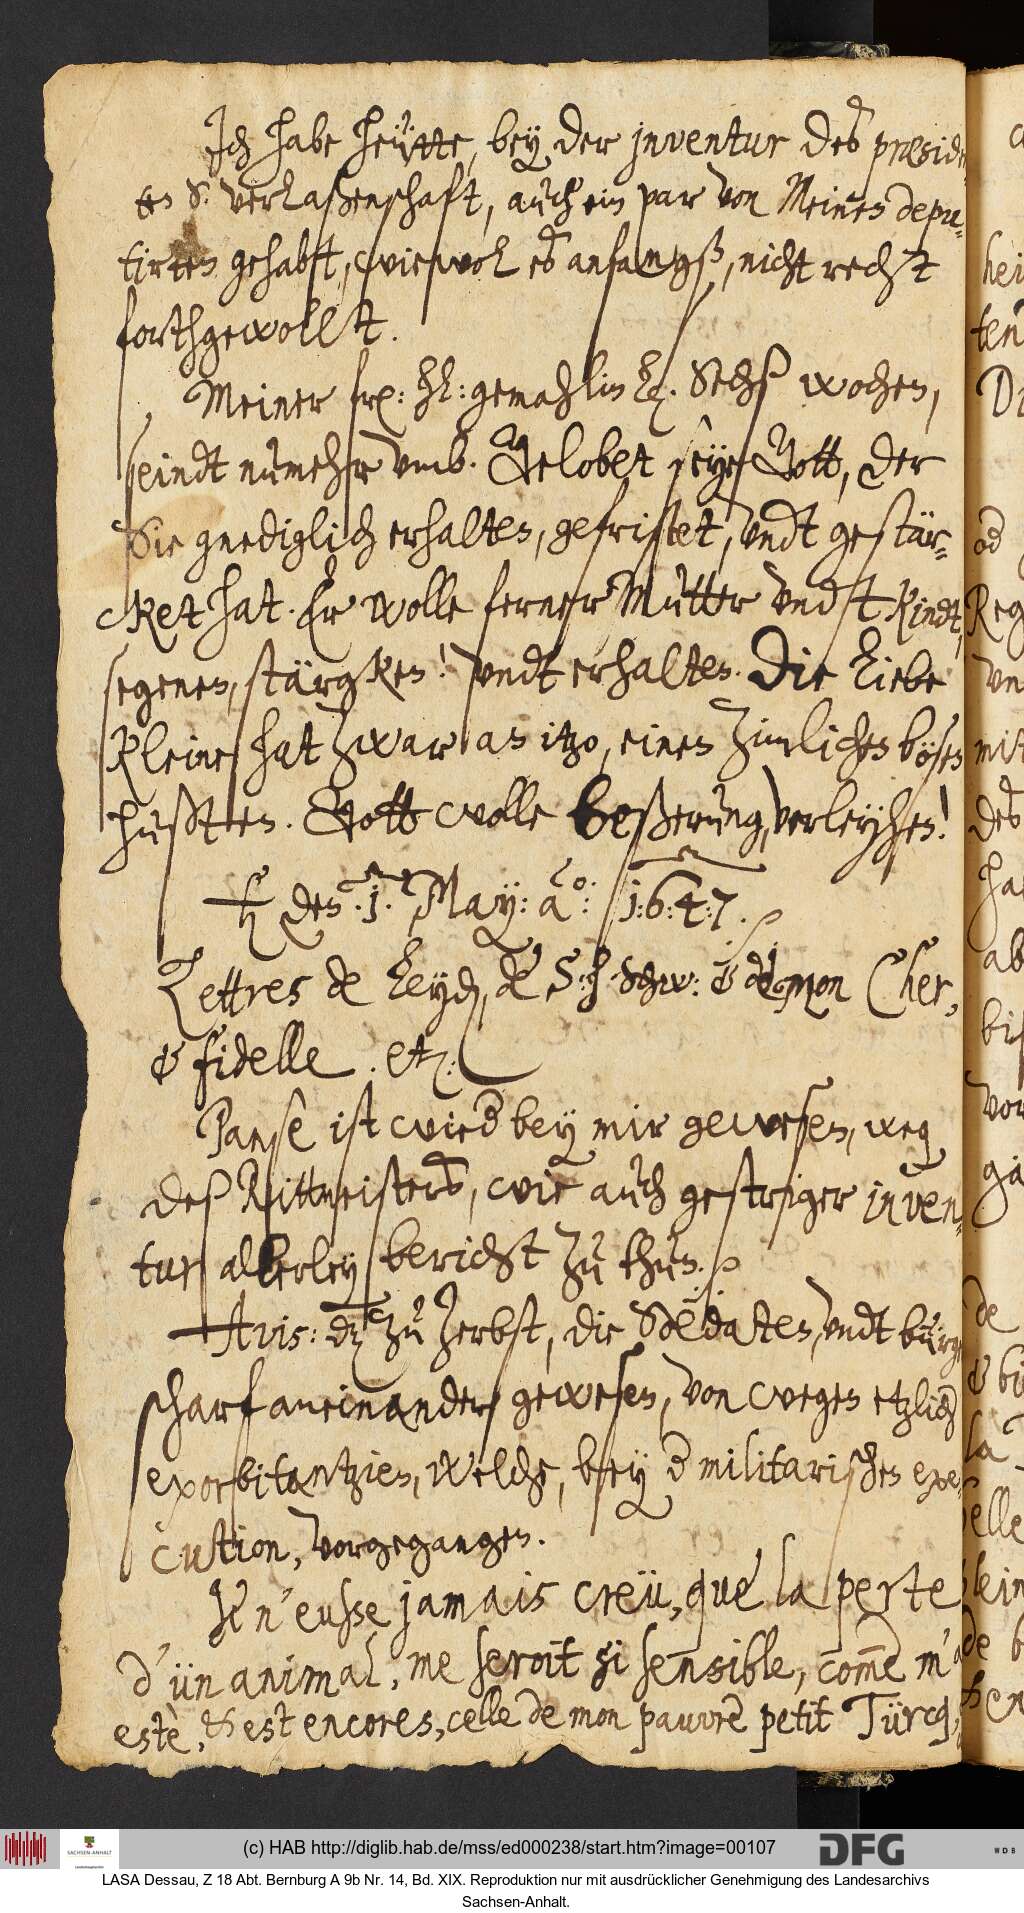 Ich habe heütte, bey der inventur des præsiden
ten S. verlaßenschaft, auch ein par von Meinen depu-
tirten gehabtt, wiewol es anfangß, nicht recht
forthgewollt.
Meiner frl: hl: gemahlin L. Sechß wochen,
seindt numehr vmb. Gelobet seye Gott, der
Sie gnediglich erhalten, gefristet, vndt gestär-
cket hat. Er wolle ferner Mutter vndt Kindt,
segenen, stärgken! vndt erhalten. Die liebe
Kleine hat zwar an itzo, einen zimlichen bösen
husten. Gott wolle beßerung, verleyhen!
♄ den .1. May: ao: 1:6:4:7.
Lettres de Leyd, de S: h. Schw: & de mon Cher,
& fidelle . etc.
Panse ist wied bey mir gewesen, weg
deß Rittmeisters, wie auch gestriger inven-
tur allerley bericht zu thun.
Avis: dz zu Zerbst, die Soldaten, vndt bürger
scharf aneinander gewesen, von wegen etzlich
exorbitantzien, welche, bey d militarischen exe-
cution, vorgegangen.
Je n'eusse jamais creü, que la perte
d'ün animal, me seroit si sensible, come m'a
estè, & est encores, celle de mon pauvre petit Türcq,
(c) HAB http://diglib.hab.de/mss/ed000238/start.htm?image=00107
DFG
WDB
SACHSEN-ANHALT
LASA Dessau, Z 18 Abt. Bernburg A 9b Nr. 14, Bd. XIX. Reproduktion nur mit ausdrücklicher Genehmigung des Landesarchivs
Sachsen-Anhalt.